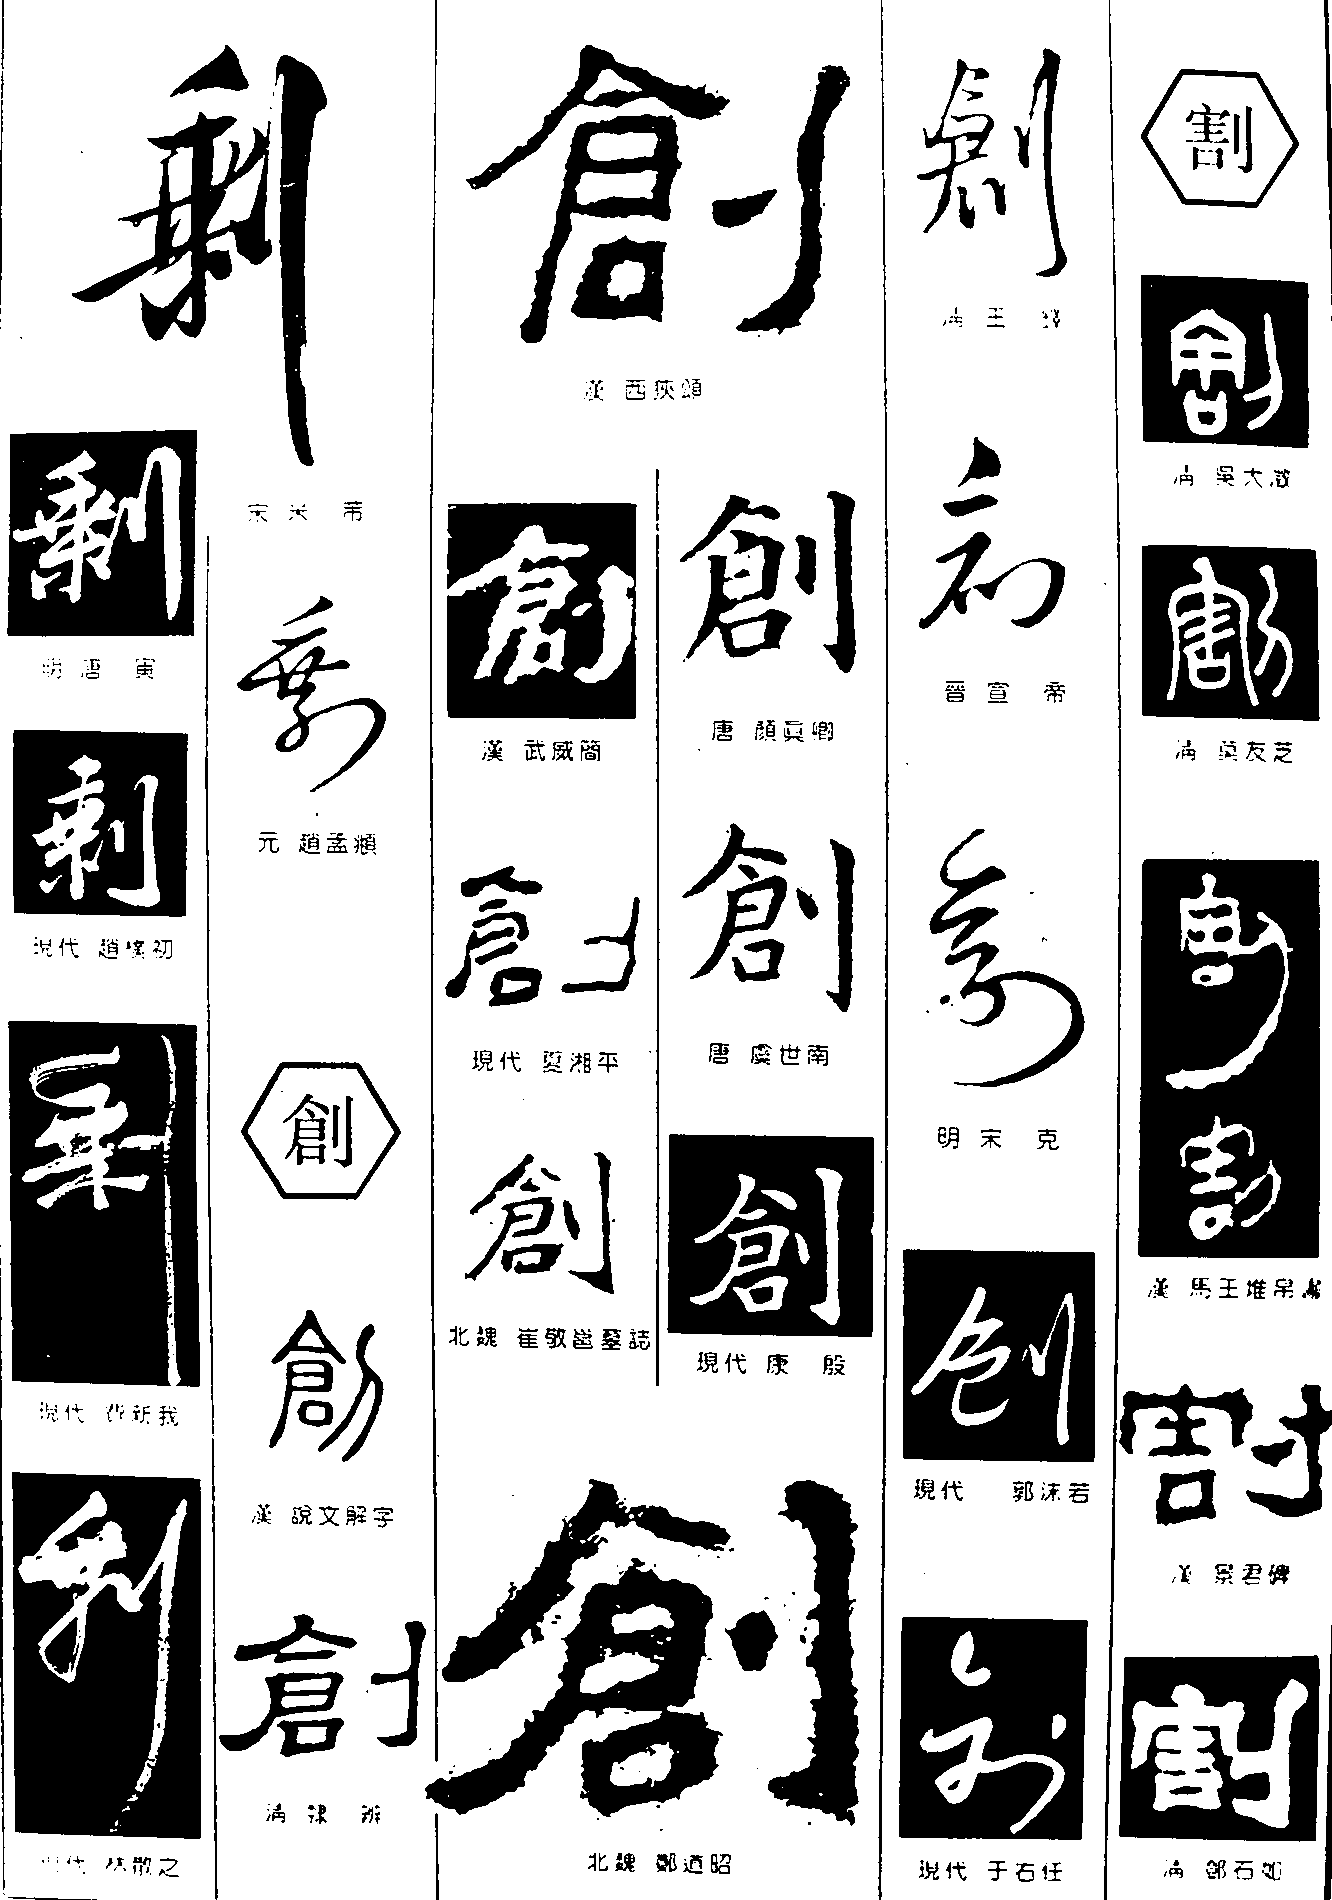 割
割
清 吳大澂
割
清 莫友芝
割
割
漢 馬王堆帛書
割
漢 景君碑
割
清 鄧石如
創
清 王 鐸
創
晉 宣 帝
創
明 宋 克
創
現代 郭沫若
創
現代 于右任
創
漢 西狹頌
創
唐 顏真卿
創
唐 虞世南
創
現代 康 殷
創
漢 武威簡
創
現代 夏湘平
創
北魏 崔敬邕墓誌
創
北魏 鄭道昭
剩
宋 米 芾
剩
元 趙孟頫
創
創
漢 說文解字
創
清 隸 辨
剩
明 唐 寅
剩
現代 趙樸初
剩
現代 費新我
剩
現代 林散之